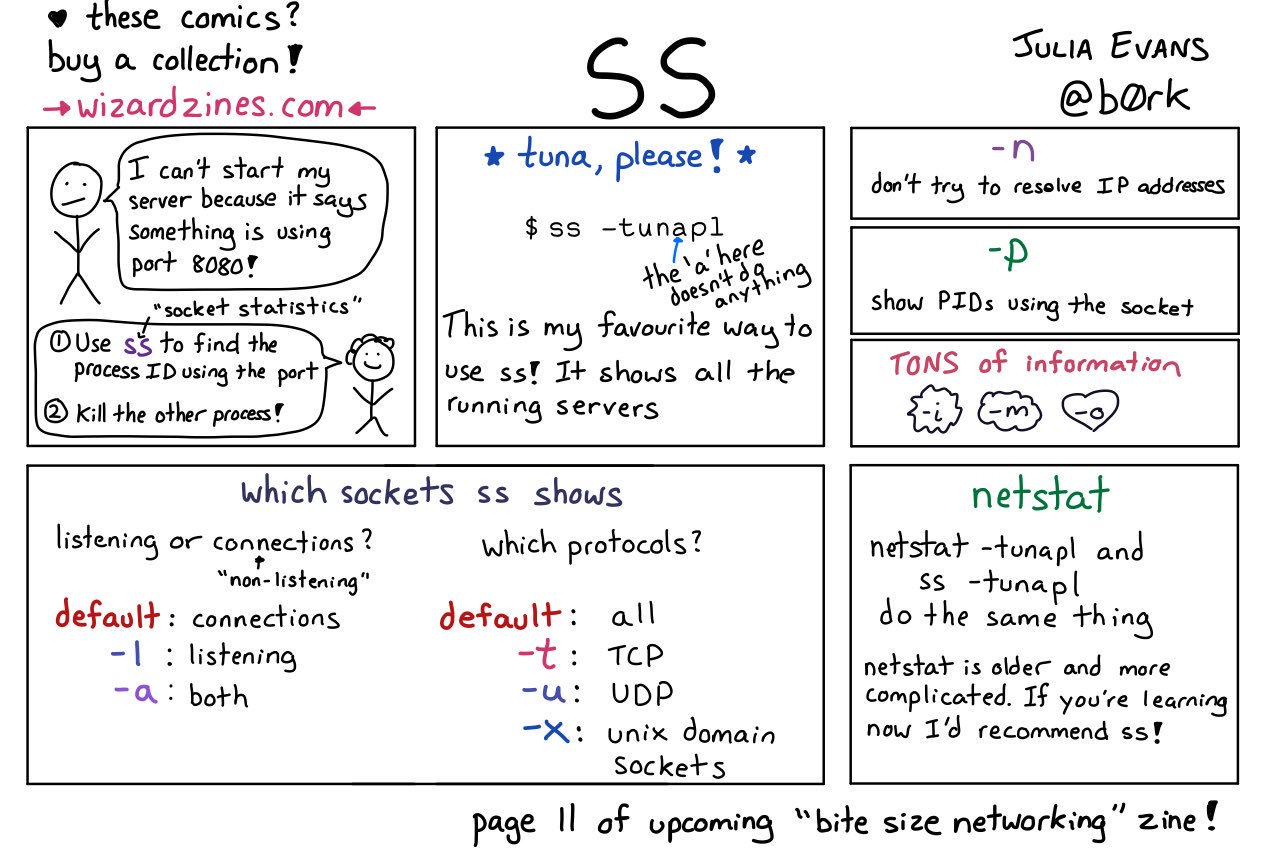 ♥ these comics?
buy a collection!
→wizardzines.com←
ss
JULIA EVANS
@b0rk
I can't start my
server because it says
something is using
port 8080!
"socket statistics"
① Use ss to find the
process ID using the port
② Kill the other process!
★ tuna, please! ★
$ ss -tunapl
the 'a' here
doesn't do
anything
This is my favourite way to
use ss! It shows all the
running servers
-n
don't try to resolve IP addresses
-p
show PIDs using the socket
TONS of information
-i -m -o
which sockets ss shows
listening or connections?
"non-listening"
default: connections
-l : listening
-a : both
which protocols?
default: all
-t : TCP
-u : UDP
-x : unix domain
sockets
netstat
netstat -tunapl and
ss -tunapl
do the same thing
netstat is older and more
complicated. If you're learning
now I'd recommend ss!
page 11 of upcoming "bite size networking" zine!